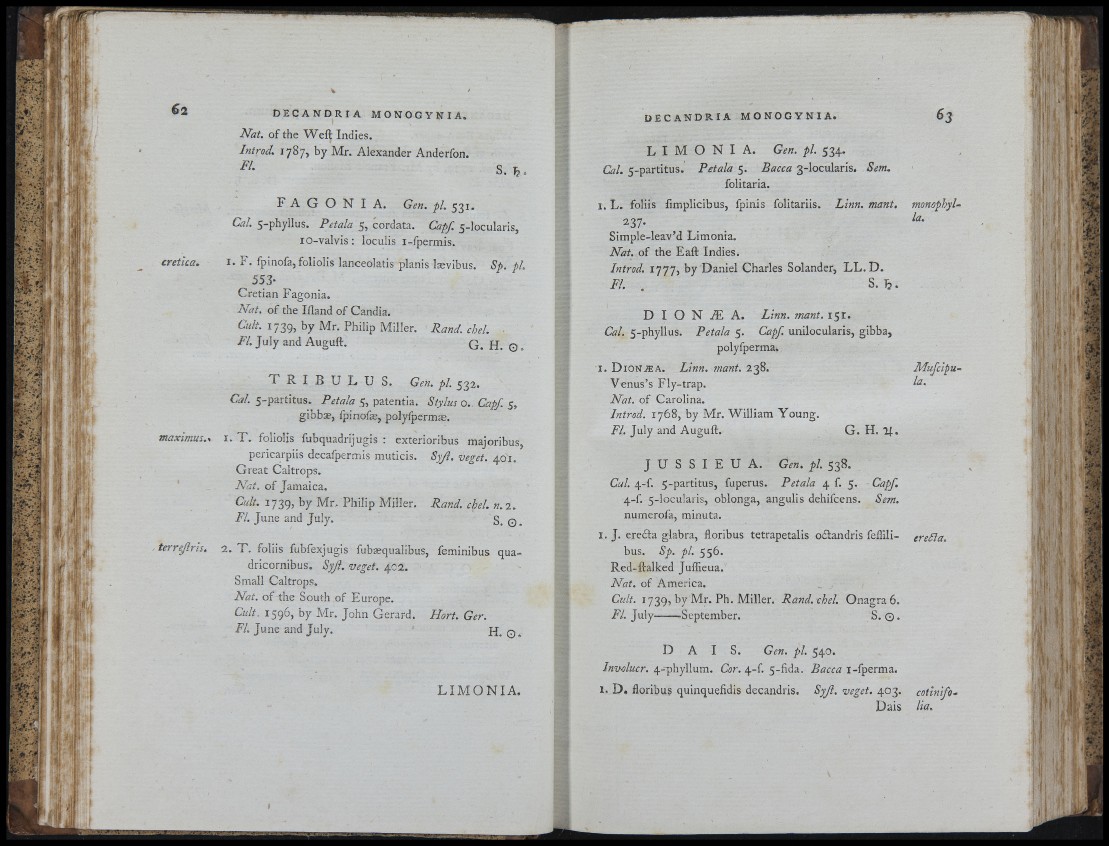 62
DECANDRIA MONOGYNIA.
Nat. of the Weſt Indies.
Introd. 1787, by Mr. Alexander Anderſon.
Fl. S. ♄.
FAGONIA. Gen. pl. 531.
Cal. 5-phyllus. Petala 5, cordata. Capſ. 5-locularis,
10-valvis: loculis 1-ſpermis.
cretica. 1. F. ſpinoſa, foliolis lanceolatis planis lævibus. Sp. pl.
553.
Cretian Fagonia.
Nat. of the Iſland of Candia.
Cult. 1739, by Mr. Philip Miller. Rand. chel.
Fl. July and Auguſt. G. H. ☉.
TRIBULUS. Gen. pl. 532.
Cal. 5-partitus. Petala 5, patentia. Stylus 0. Capſ. 5,
gibbæ, ſpinoſæ, polyſpermæ.
maximus. 1. T. foliolis ſubquadrijugis: exterioribus majoribus,
pericarpiis decaſpermis muticis. Syſt. veget. 401.
Great Caltrops.
Nat. of Jamaica.
Cult. 1739, by Mr. Philip Miller. Rand. chel. n. 2.
Fl. June and July. S. ☉.
terreſtris. 2. T. foliis ſubſexjugis ſubæqualibus, ſeminibus qua-
dricornibus. Syſt. veget. 402.
Small Caltrops.
Nat. of the South of Europe.
Cult. 1596, by Mr. John Gerard. Hort. Ger.
Fl. June and July. H. ☉.
LIMONIA.
DECANDRIA MONOGYNIA.
63
LIMONIA. Gen. pl. 534.
Cal. 5-partitus. Petala 5. Bacca 3-locularis. Sem.
ſolitaria.
1. L. foliis ſimplicibus, ſpinis ſolitariis. Linn. mant. monophyl-
237. la.
Simple-leav'd Limonia.
Nat. of the Eaſt Indies.
Introd. 1777, by Daniel Charles Solander, LL.D.
Fl. S. ♄.
DIONÆA. Linn. mant. 151.
Cal. 5-phyllus. Petala 5. Capſ. unilocularis, gibba,
polyſperma.
1. DIONÆA. Linn. mant. 238. Muſcipu-
Venus's Fly-trap. la.
Nat. of Carolina.
Introd. 1768, by Mr. William Young.
Fl. July and Auguſt. G. H. ♃.
JUSSIEUA. Gen. pl. 538.
Cal. 4-ſ. 5-partitus, ſuperus. Petala 4 ſ. 5. Capſ.
4-ſ. 5-locularis, oblonga, angulis dehiſcens. Sem.
numeroſa, minuta.
1. J. erecta glabra, floribus tetrapetalis octandris ſeſſili- erecta.
bus. Sp. pl. 556.
Red-ſtalked Juſſieua.
Nat. of America.
Cult. 1739, by Mr. Ph. Miller. Rand. chel. Onagra 6.
Fl. July——September. S. ☉.
DAIS. Gen. pl. 540.
Involucr. 4-phyllum. Cor. 4-ſ. 5-fida. Bacca 1-ſperma.
1. D. floribus quinquefidis decandris. Syſt. veget. 403. cotinifo-
Dais lia.